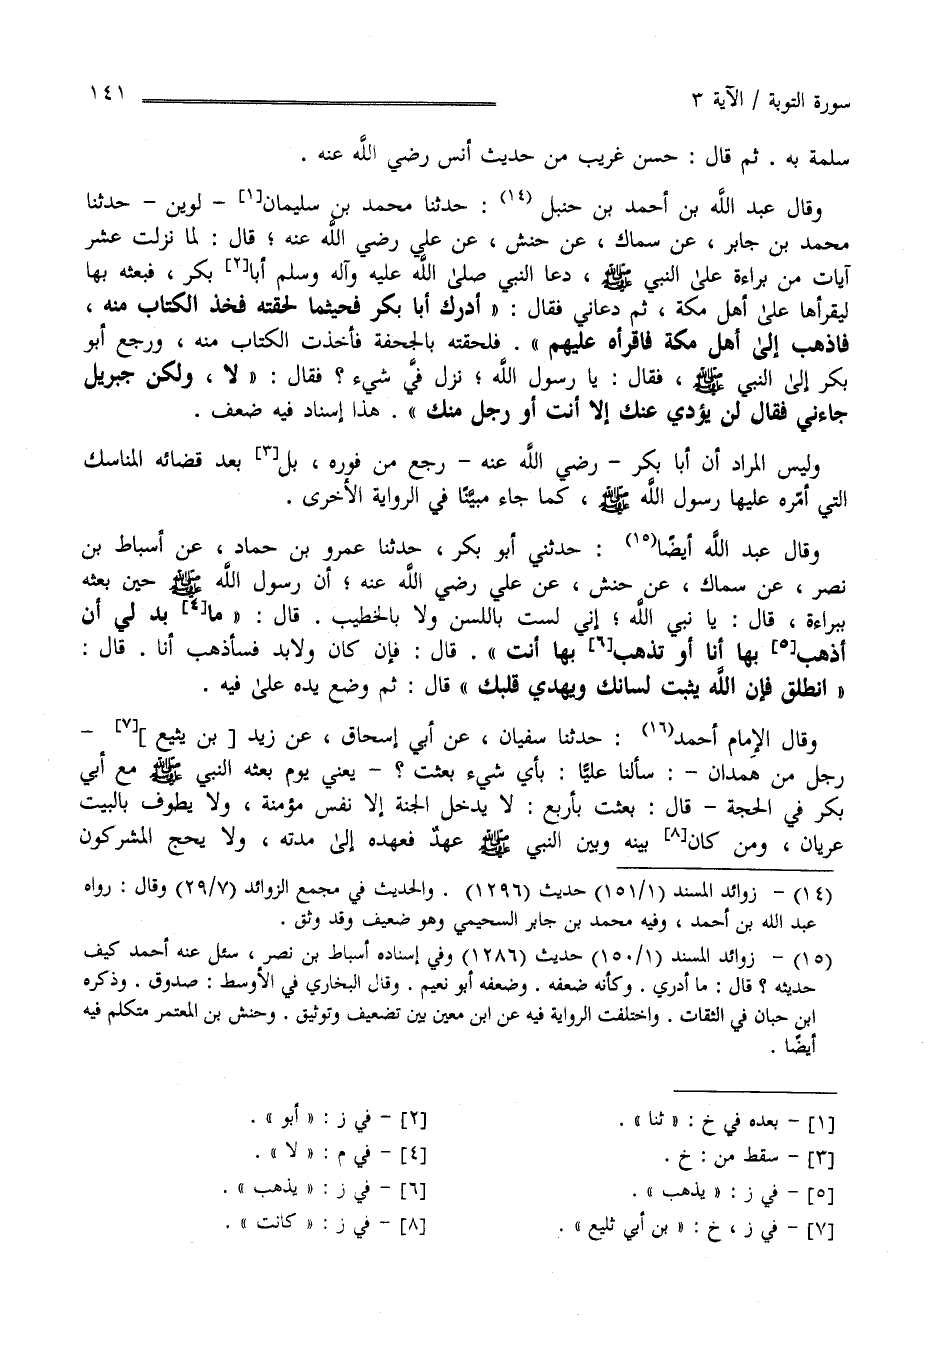 سورة التوبة / الآية ٣ ١٤١
سلمة به . ثم قال : حسن غريب من حديث أنس رضي اللَّه عنه .
وقال عبد اللَّه بن أحمد بن حنبل (١٤) : حدثنا محمد بن سليمان[١] - لوين - حدثنا
محمد بن جابر ، عن سماك ، عن حنش ، عن علي رضي اللَّه عنه ؛ قال : لما نزلت عشر
آيات من براءة على النبي ﷺ ، دعا النبي صلى اللَّه عليه وآله وسلم أبا[٢] بكر ، فبعثه بها
ليقرأها على أهل مكة ، ثم دعاني فقال : « أدرك أبا بكر فحيثما لحقته فخذ الكتاب منه ،
فاذهب إلى أهل مكة فاقرأه عليهم » . فلحقته بالجحفة فأخذت الكتاب منه ، ورجع أبو
بكر إلى النبي ﷺ ، فقال : يا رسول اللَّه ؛ نزل فيَّ شيء ؟ فقال : « لا ، ولكن جبريل
جاءني فقال لن يؤدي عنك إلا أنت أو رجل منك » . هذا إسناد فيه ضعف .
وليس المراد أن أبا بكر - رضي اللَّه عنه - رجع من فوره ، بل[٣] بعد قضائه المناسك
التي أمّره عليها رسول اللَّه ﷺ ، كما جاء مبيَّنًا في الرواية الأخرى .
وقال عبد اللَّه أيضًا(١٥) : حدثني أبو بكر ، حدثنا عمرو بن حماد ، عن أسباط بن
نصر ، عن سماك ، عن حنش ، عن علي رضي اللَّه عنه ؛ أن رسول اللَّه ﷺ حين بعثه
ببراءة ، قال : يا نبي اللَّه ؛ إني لست باللسن ولا بالخطيب . قال : « ما[٤] بد لي أن
أذهب[٥] بها أنا أو تذهب[٦] بها أنت » . قال : فإن كان ولابد فسأذهب أنا . قال :
« انطلق فإن اللَّه يثبت لسانك ويهدي قلبك » قال : ثم وضع يده على فيه .
وقال الإمام أحمد(١٦) : حدثنا سفيان ، عن أبي إسحاق ، عن زيد [ بن يثيع ][٧] -
رجل من همدان - : سألنا عليًّا : بأي شيء بعثت ؟ - يعني يوم بعثه النبي ﷺ مع أبي
بكر في الحجة - قال : بعثت بأربع : لا يدخل الجنة إلا نفس مؤمنة ، ولا يطوف بالبيت
عريان ، ومن كان[٨] بينه وبين النبي ﷺ عهدٌ فعهده إلى مدته ، ولا يحج المشركون
(١٤) - زوائد المسند (١٥١/١) حديث (١٢٩٦) . والحديث في مجمع الزوائد (٢٩/٧) وقال : رواه
عبد الله بن أحمد ، وفيه محمد بن جابر السحيمي وهو ضعيف وقد وثق .
(١٥) - زوائد المسند (١٥٠/١) حديث (١٢٨٦) وفي إسناده أسباط بن نصر ، سئل عنه أحمد كيف
حديثه ؟ قال : ما أدري . وكأنه ضعفه . وضعفه أبو نعيم . وقال البخاري في الأوسط : صدوق . وذكره
ابن حبان في الثقات . واختلفت الرواية فيه عن ابن معين بين تضعيف وتوثيق . وحنش بن المعتمر متكلم فيه
أيضًا .
[١] - بعده في خ : « ثنا » . [٢] - في ز : « أبو » .
[٣] - سقط من : خ . [٤] - في م : « لا » .
[٥] - في ز : « يذهب » . [٦] - في ز : « يذهب » .
[٧] - في ز ، خ : « بن أبي ثليع » . [٨] - في ز : « كانت » .